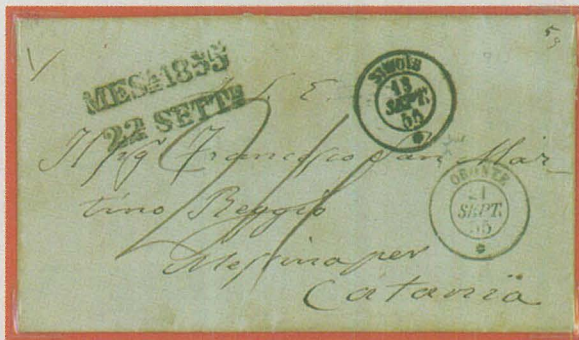 MES.A 1855
22 SETT.E
SIMOIS
13
SEPT.
55
ORONTE
21
SEPT.
55
S. E.
Il Sigr. Francesco San Mar-
tino Reggio
Messina per
Catania